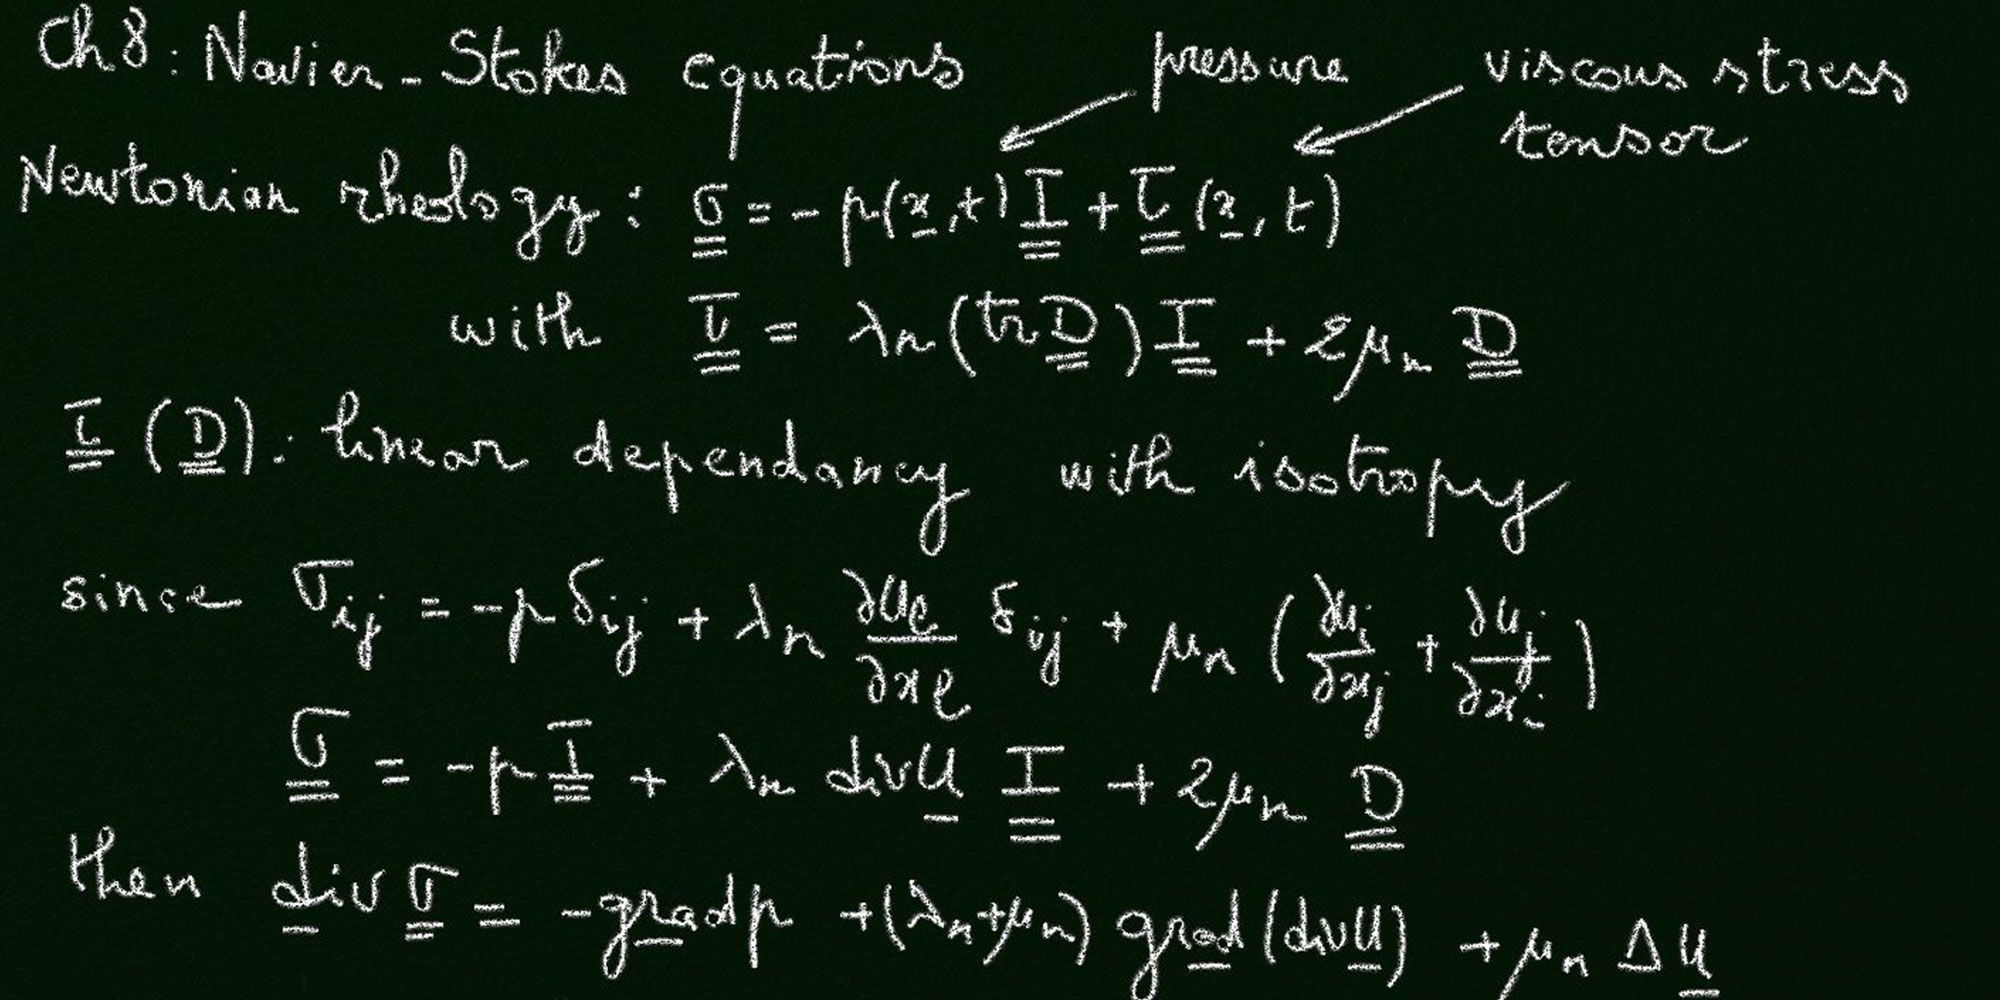 Ch 8: Navier-Stokes equations
pressure
viscous stress
tensor
Newtonian rheology: σ̳ = -p(x̲,t) I̳ + τ̳(x̲,t)
with τ̳ = λₙ(tr D̳) I̳ + 2μₙ D̳
τ̳(D̳): linear dependancy with isotropy
since σij = -p δij + λₙ ∂uℓ/∂xℓ δij + μₙ (∂ui/∂xj + ∂uj/∂xi)
σ̳ = -p I̳ + λₙ div u̲ I̳ + 2μₙ D̳
then d̲i̲v̲ σ̳ = -g̲r̲a̲d̲ p + (λₙ+μₙ) g̲r̲a̲d̲(div u̲) + μₙ Δu̲